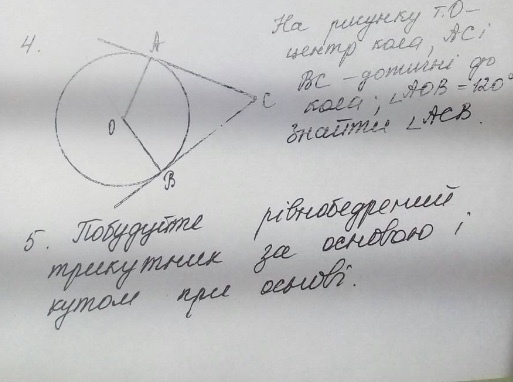 4.
A
O
B
C
На рисунку т.О-
центр кола, AC і
BC - дотичні до
кола; ∠AOB = 120°
знайти ∠ACB.
5. Побудуйте рівнобедрений
трикутник за основою і
кутом при основі.